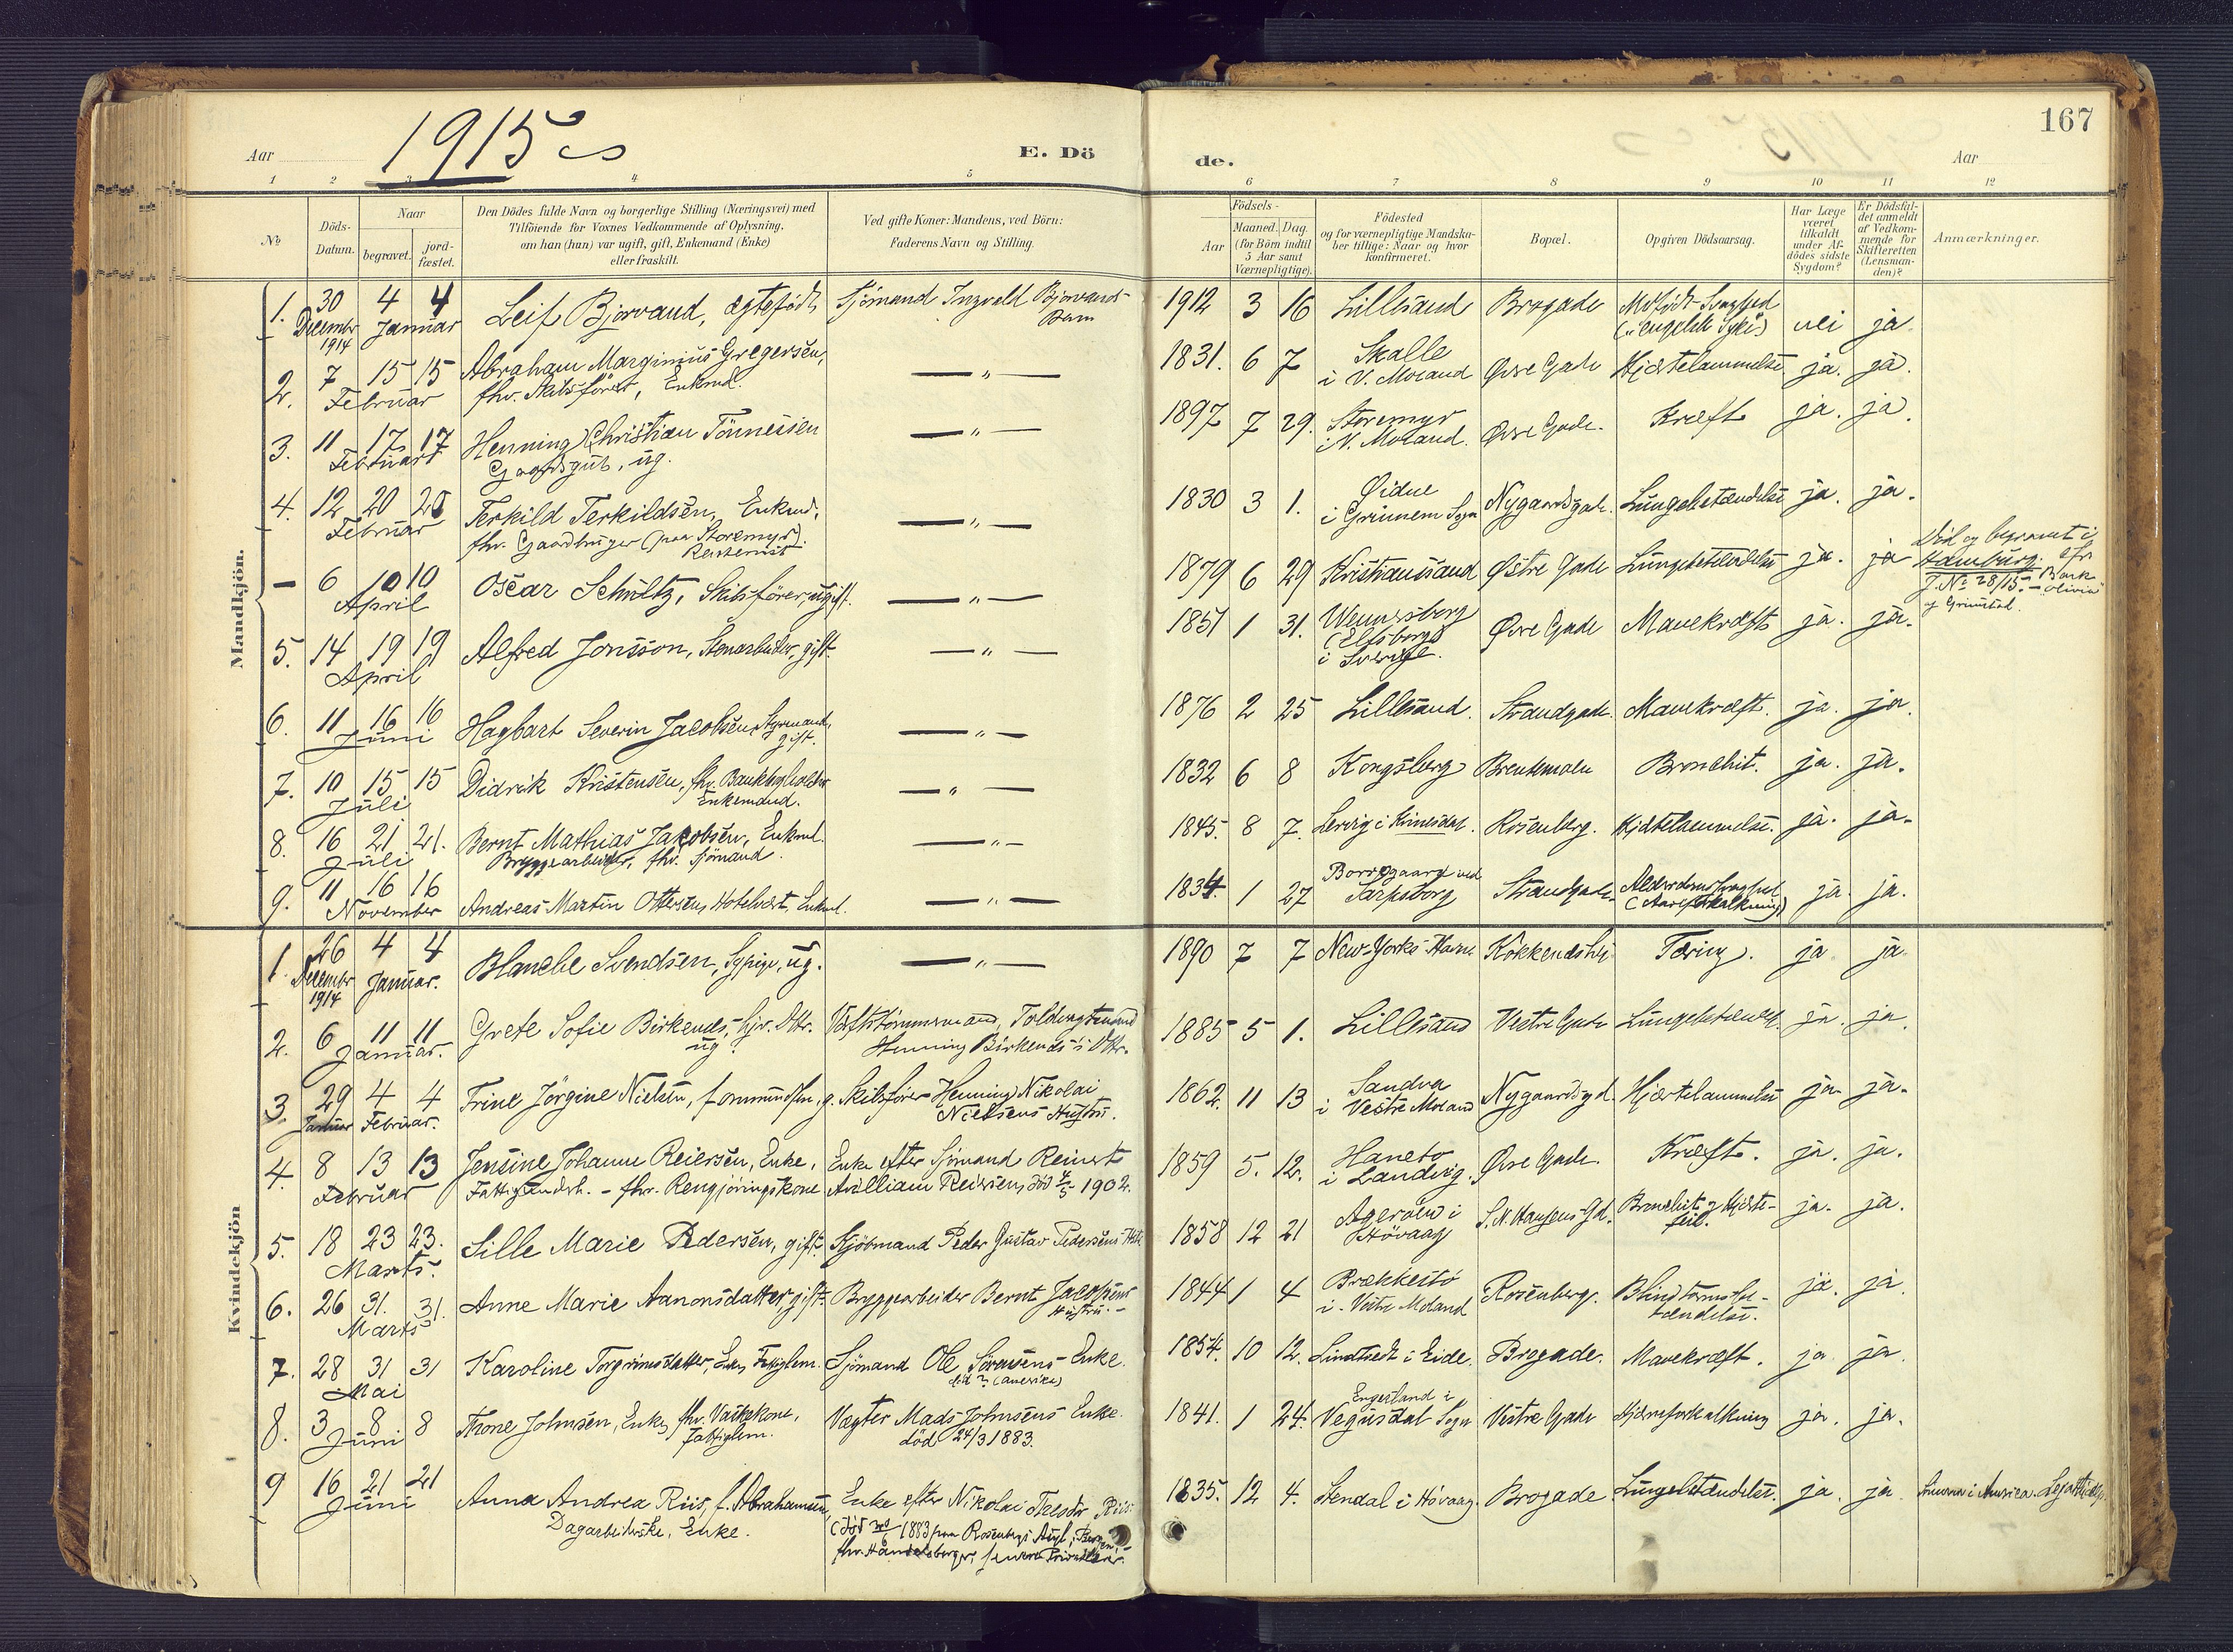 167
Aar 1915 E. Döde. Aar
1 2 3 4 5 6 7 8 9 10 11 12
No
Döds-Datum.
Naar
begravet.
jord-fæstet.
Den Dödes fulde Navn og borgerlige Stilling (Næringsvei) med
Tilföiende for Voxnes Vedkommende af Oplysning,
om han (hun) var ugift, gift, Enkemand (Enke)
eller fraskilt.
Ved gifte Koner: Mandens, ved Börn:
Faderens Navn og Stilling.
Födsels-
Aar
Maaned. Dag
(for Börn indtil
5 Aar samt
Værnepligtige).
Födested
og for værnepligtige Mandska-
ber tillige: Naar og hvor
konfirmeret.
Bopæl.
Opgiven Dödsaarsag.
Har Læge
været
tilkaldt
under Af-
dödes sidste
Sygdom?
Er Dödsfal-
det anmeldt
af Vedkom-
mende for
Skifteretten
(Lensman-
den)?
Anmærkninger.
Mandkjön.
1. 30 4 4 Leif Bjorvand, ægtefödt, Sjömand Ingvald Bjorvands 1912 3 16 Lillesand Brogade Medfödt Svaghed
Decembr 1914 Januar Barn ("engelsk Syke") nei ja
2. 7 15 15 Abraham Marginius Gregersen, — " — 1831. 6 7 Skalle Øvre Gade Hjertelammelse ja. ja.
Februar fhv. Skibsförer, Enkmd. i V. Moland
3. 11 17 17 Henning Christian Tönnessen — " — 1897 7 29. Storemyr Øvre Gade. Kræft ja. ja.
Februar Gaardsgut, ug. i V. Moland.
4. 12 20 20 Terkild Terkildsen, Enkmd, — " — 1830 3 1. Øidne Nygaardsgade. Lungebetændelse ja. ja.
Februar fhv. Gaardbruger (paa Storemyr). i Grinnem Sogn
- 6 10 10 Oscar Schultz, Skibsförer, ugift. — " — 1879 6 29 Kristianssand Østre Gade Lungebetændelse ja. ja Död og begravet i
April Hamburg. cfr
J.No 28/15. - Bark
"Olivia"
af Grimstad.
5. 14 19 19 Alfred Jonsson, Stenarbeider, gift. — " — 1851 1 31. Wennersborg Øvre Gade Mavekræft ja. ja.
April (Elfsborg)
i Sverige.
6. 11 16 16 Hagbart Severin Jacobsen, Styrmand, — " — 1876 2 25 Lillesand. Strandgade. Mavekræft. ja. ja.
Juni gift.
7. 10 15 15 Didrik Kristensen, fhv. Bankbogholder — " — 1832 6 8 Kongsberg Brentemoen Bronchit. ja. ja.
Juli Enkemand.
8. 16 21 21. Bernt Mathias Jakobsen, Enkmd. — " — 1845. 8 7. Rosenberg. Hjertelammelse. ja. ja.
Juli Bryggearbeider, fhv. Sjömand.
9. 11 16 16 Andreas Martin Ottersen, Hotelvært, Enkmd. — " — 1834. 1 27 Borregaard ved Strandgade. Alderdomssvaghed ja. ja.
November Sarpsborg (Aareforkalkning)
Kvindekjön
1. 26 4 4 Blanche Svendsen, Sypige, ug. — " — 1890 7 7 New-Yorks Havn Tæring. ja ja
Decembr 1914 Januar.
2. 6 11 11 Grete Sofie Birkeneds, hjv. Dttr. Værftstömmermand, 1885 5 1. Lillesand Vestre Gade Lungebetændelse. ja. ja.
Januar. ug. Henning Birkeneds's Dttr.
3. 29 4 4 Trine Jörgine Nielsen, g. Skibsförer Henning Nikolai 1862. 11 13 Sandva Nygaardsgd. Hjertelammelse ja. ja.
Januar Februar. Nielsens Hustru. i Vestre Moland
4. 8 13 13 Jensine Johanne Reiersen, Enke, Enke efter Sjömand Reinert 1859 5. 12. Haneto Øvre Gade. Kræft. ja. ja.
Februar Fattigunderst. - fhv. Rengjöringskone William Reiersen, död 4/5 1902. i Landvig.
5. 18 23 23. Sille Marie Pedersen, gift. Sjömand Peder Gustav Pedersens Hustru 1858 12 21 Ageröen i S. N. Hansens Gd. Bronchit og Hjerte- ja. ja.
Marts. Hövaag feil.
6. 26 31. 31. Anne Marie Aanonsdatter, gift. Bryggearbeider Bernt Jacobsens 1844 1 4 Brækkestö Rosenberg. Blindtarmsbe- ja. ja.
Marts Hustru. - i Vestre Moland tændelse.
7. 28 31 31 Karoline Torgrimsdatter, Enke, Fattiglem. Sjömand Ole Sörensens Enke. 1854. 10 12. Lindtvedt i Eide. Brogade. Mavekræft. ja. ja.
Mai död ? (Amerika)
8. 3 8 8 Trone Johnsen, Enke, fhv. Vaskekone, Vægter Mads Johnsens Enke. 1841. 1 24. Engesland i Vestre Gade Hjerneforkalkning ja. ja.
Juni Fattiglem. död 24/3 1883. Vegusdal Sogn
9 16 21 21 Anna Andrea Riis, f. Abrahamsen, Enke efter Nikolai Theodor Riis 1835. 12 4. Stendal i Hövaag. Brogade Lungebetændelse. ja. ja
Juni Dagarbeiderske, Enke. (död 1883 paa Rosenbergs Asyl, Bergen,
fhv. Handelsborger, senere Privatlærer.